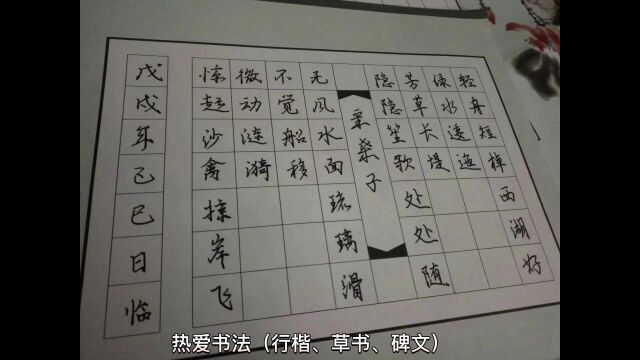 轻舟短棹西湖好
绿水逶迤
芳草长堤
隐隐笙歌处处随
采桑子
无风水面琉璃滑
不觉船移
微动涟漪
惊起沙禽掠岸飞
戊戌年己巳日临
热爱书法（行楷、草书、碑文）